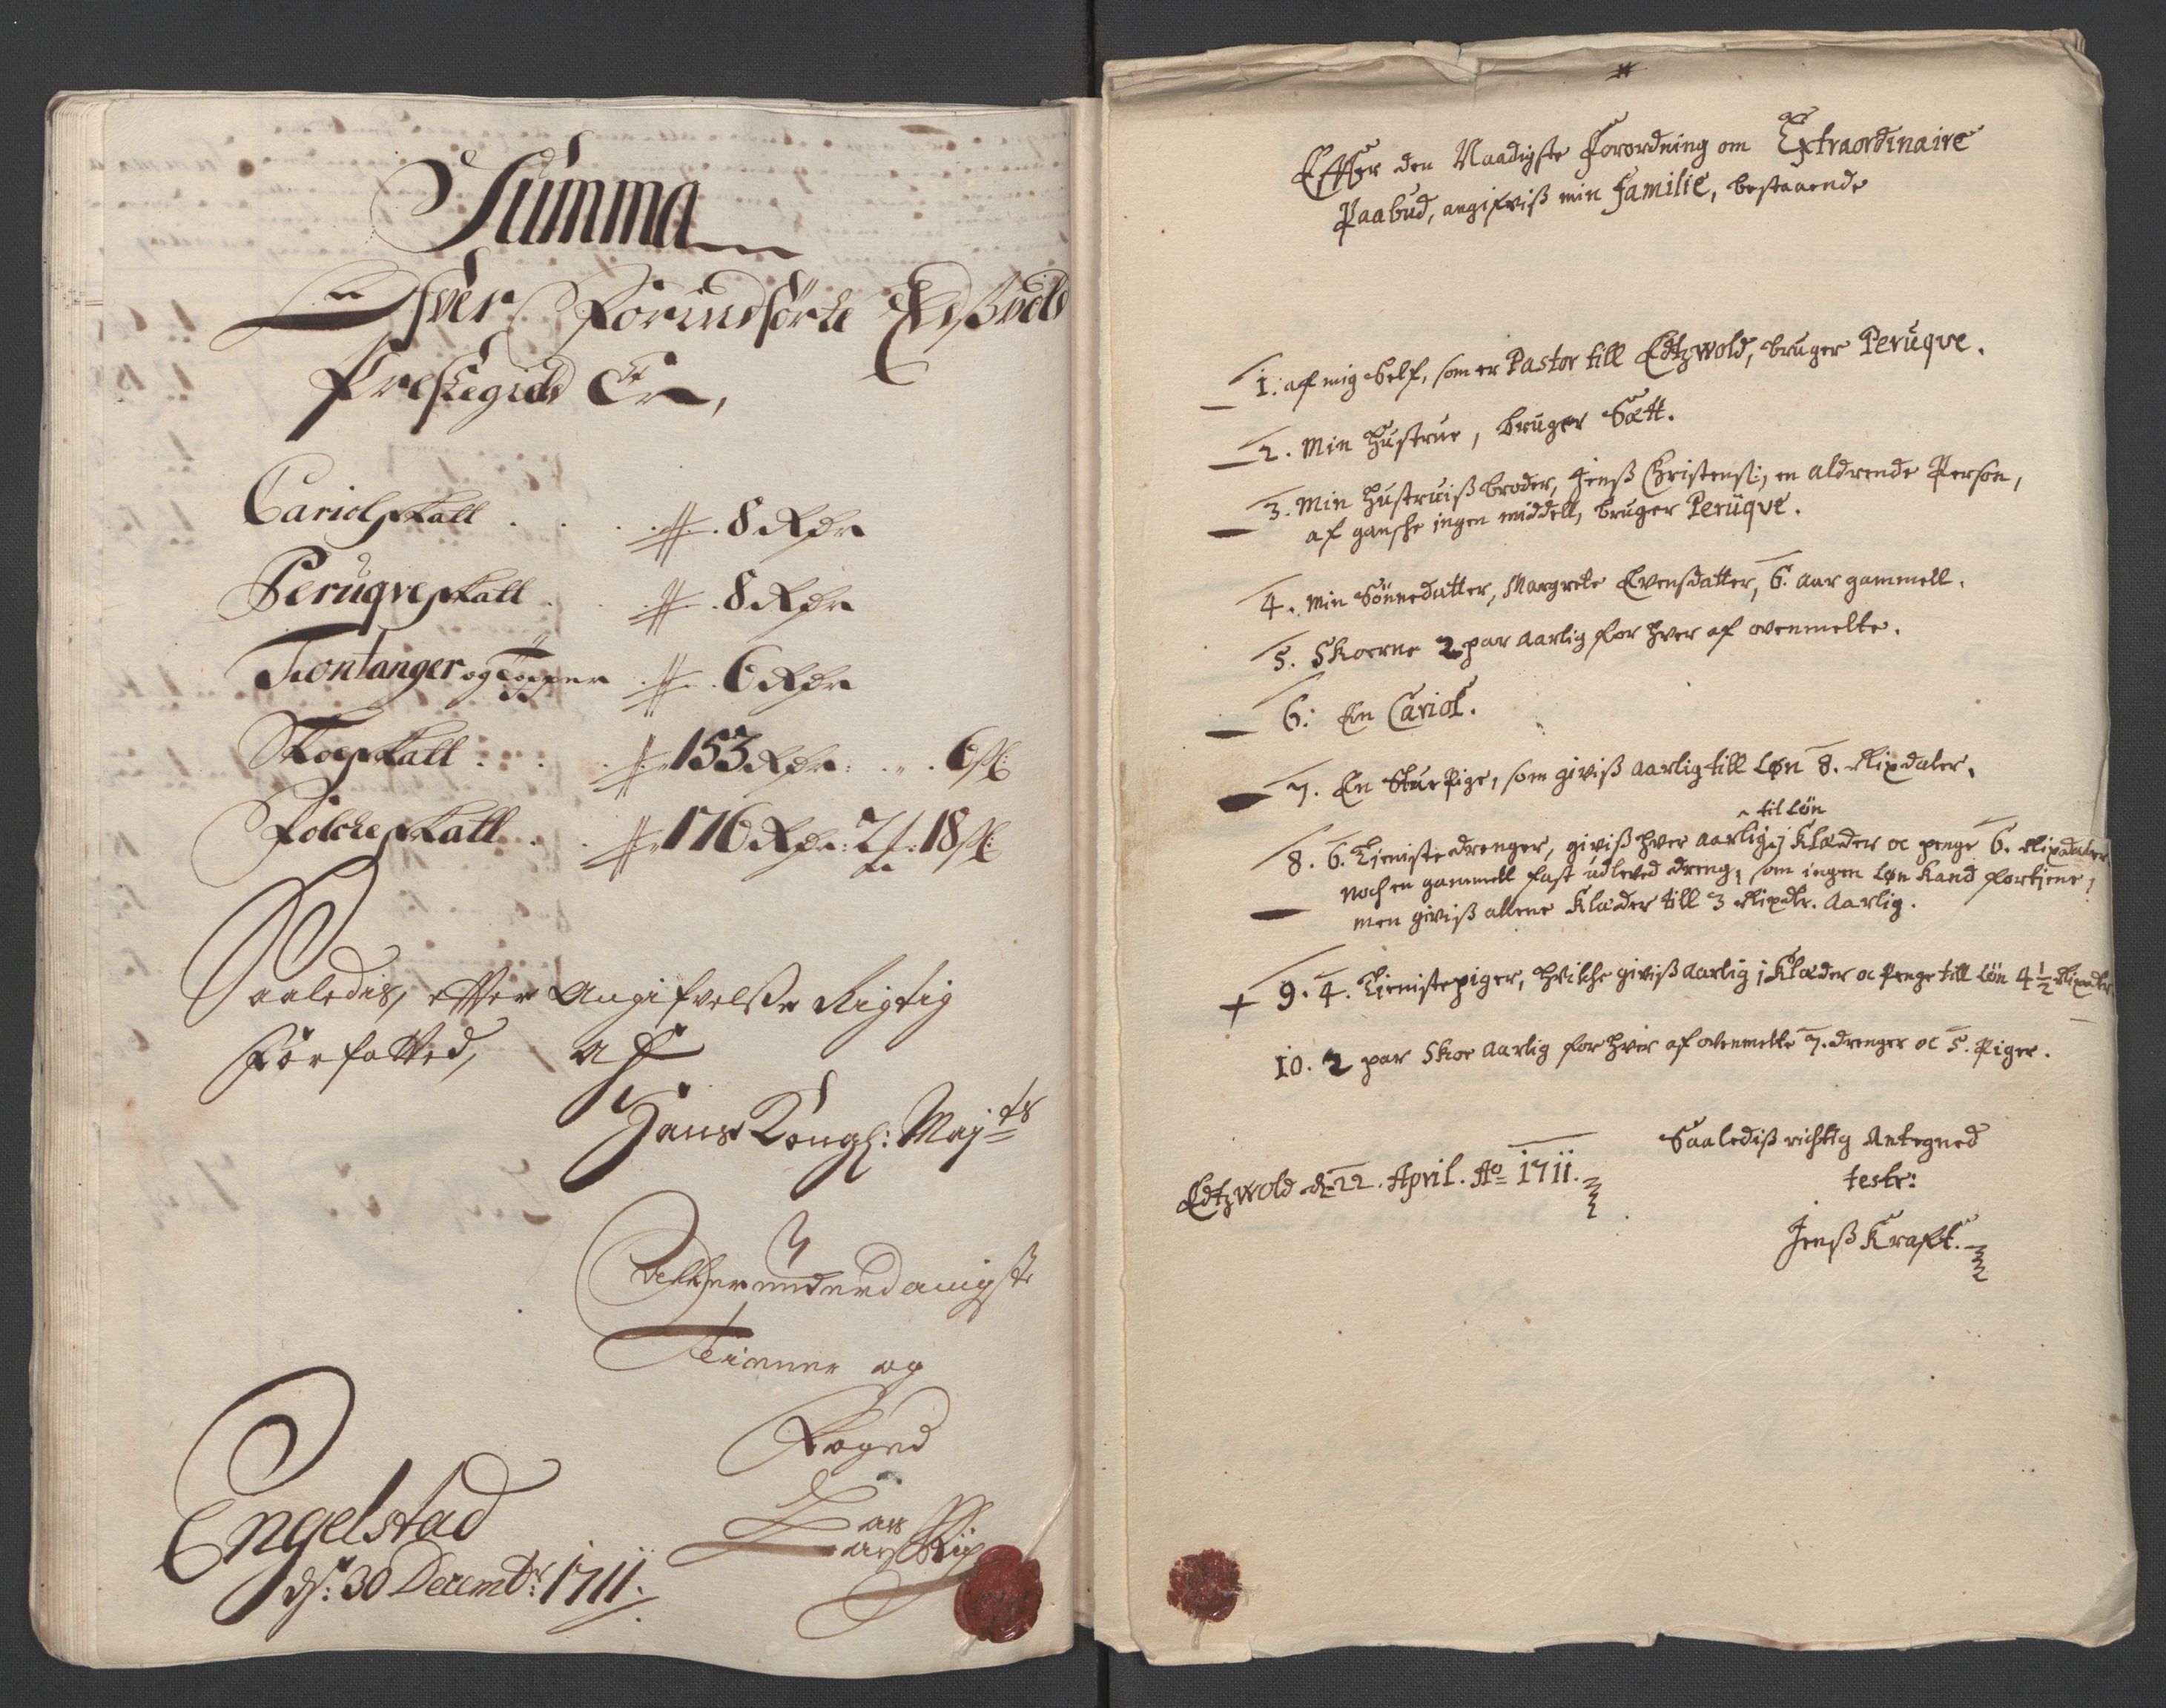 Summa
Ofver Forindførte Eidsvold
Præstegield Er,
Cariolskatt . . . 8 Rdr
Peruqveskatt . . 8 Rdr
Fontanger og Topper . 6 Rdr
Skoeskatt . . . 153 Rdr: „ . 6 ss:
Folckeskatt . . 176 Rdr: 2 ƒ: 18 ss:
Saaledis, efter Angifvelse Rigtig
Forfatted, af
Hans Kongl: Maj:ts
Allerunderdanigste
Tienner og
Foged
Engelstad
ds: 30 Decembr: 1711.
Effter den Naadigste Forordning om Extraordinaire
Paabud, angifviß min Familie, bestaaende
1. af mig Self, som er Pastor till Edtzwold, bruger Peruqve.
2. Min Hustrue, bruger Sætt.
3. Min Hustruiß broder, Jenß Christenß:, en aldrende Person,
af gansche ingen middell, bruger Peruqve.
4. Min Sønnedatter, Margrete Evensdatter, 6. aar gammell.
5. Skoerne 2 par aarlig for hver af ovenmelte.
6. En Cariol.
7. En StuePige, som giviß aarlig till Løn 8. Rixdaler.
til Løn
8. 6. Tienistedrenger, giviß hver aarlig j Klæder oc penge 6. Rixdaler
noch en gammell fast udleved dreng, som ingen Løn kand fortjene,
men giviß allene Klæder till 3 Rixdlr. Aarlig.
9. 4. Tienistepiger, hvilche giviß aarlig j Klæder oc Penge till Løn 4 1/2 Rixdlr
10. 2 par Skoe aarlig for hver af ovenmelte 7. drenger oc 5. Piger.
Saalediß richtig Antegned
Edtzwold d. 22. April. Ao 1711.
teste:
Jenß Kraft.